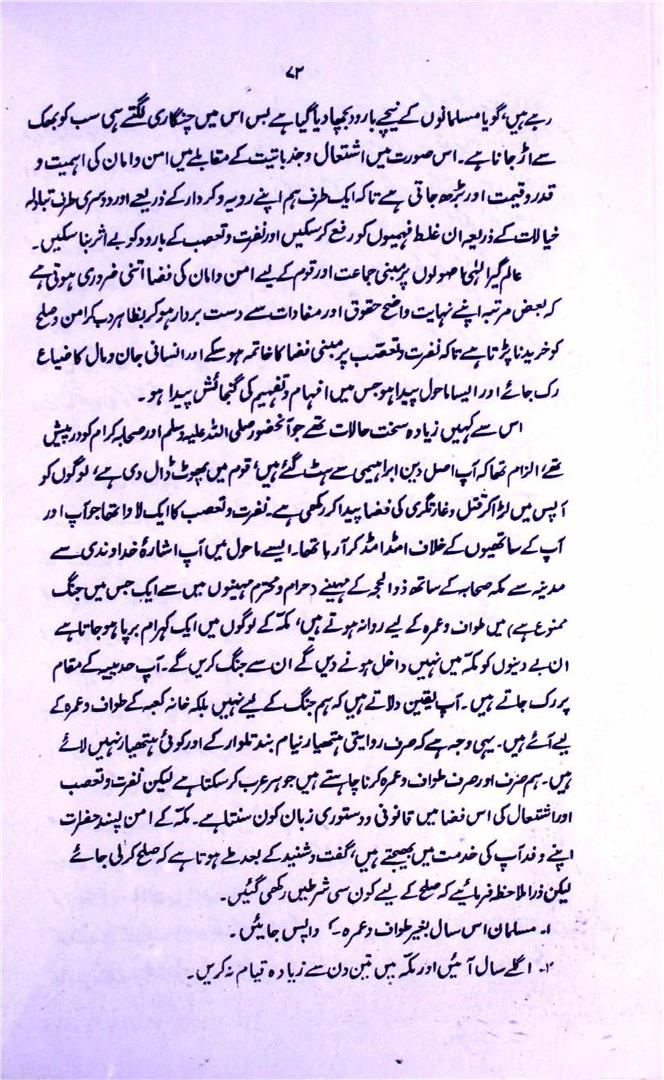 ۷۲
رہے ہیں، گویا مسلمانوں کے نیچے بارود بچھا دیا گیا ہے بس اس میں چنگاری لگتے ہی سب کو بھک
سے اڑ جانا ہے۔ اس صورت میں اشتعال و جذباتیت کے مقابلے میں امن و امان کی اہمیت و
قدر و قیمت اور بڑھ جاتی ہے تاکہ ایک طرف ہم اپنے رویہ و کردار کے ذریعے اور دوسری طرف تبادلہ
خیالات کے ذریعہ ان غلط فہمیوں کو رفع کر سکیں اور نفرت و تعصب کے بارود کو بے اثر بنا سکیں۔
عالم گیر الٰہی اصولوں پر مبنی جماعت اور قوم کے لیے امن و امان کی فضا اتنی ضروری ہوتی ہے
کہ بعض مرتبہ اپنے نہایت واضح حقوق اور مفادات سے دست بردار ہو کر بظاہر دب کر امن و صلح
کو خریدنا پڑتا ہے تاکہ نفرت و تعصب پر مبنی فضا کا خاتمہ ہو سکے اور انسانی جان و مال کا ضیاع
رک جائے اور ایسا ماحول پیدا ہو جس میں افہام و تفہیم کی گنجائش پیدا ہو۔
اس سے کہیں زیادہ سخت حالات تھے جو آنحضور صلی اللہ علیہ وسلم اور صحابہ کرام کو درپیش
تھے، الزام تھا کہ آپ اصل دین ابراہیمی سے ہٹ گئے ہیں، قوم میں پھوٹ ڈال دی ہے، لوگوں کو
آپس میں لڑا کر قتل و غارتگری کی فضا پیدا کر رکھی ہے۔ نفرت و تعصب کا ایک لاوا تھا جو آپ اور
آپ کے ساتھیوں کے خلاف امڈ امڈ کر آ رہا تھا۔ ایسے ماحول میں آپ اشارۂ خداوندی سے
مدینہ سے مکہ صحابہ کے ساتھ ذوالحجہ کے مہینے (حرام و محترم مہینوں میں سے ایک جس میں جنگ
ممنوع ہے) میں طواف و عمرہ کے لیے روانہ ہوتے ہیں، مکّہ کے لوگوں میں ایک کہرام برپا ہو جاتا ہے
ان بے دینوں کو مکّہ میں نہیں داخل ہونے دیں گے ان سے جنگ کریں گے۔ آپ حدیبیہ کے مقام
پر رک جاتے ہیں۔ آپ یقین دلاتے ہیں کہ ہم جنگ کے لیے نہیں بلکہ خانہ کعبہ کے طواف و عمرہ کے
لیے آئے ہیں۔ یہی وجہ ہے کہ صرف روایتی ہتھیار نیام بند تلوار کے اور کوئی ہتھیار نہیں لائے
ہیں۔ ہم صرف اور صرف طواف و عمرہ کرنا چاہتے ہیں جو ہر عرب کر سکتا ہے لیکن نفرت و تعصب
اور اشتعال کی اس فضا میں قانونی و دستوری زبان کون سنتا ہے۔ مکّہ کے امن پسند حضرات
اپنے وفد آپ کی خدمت میں بھیجتے ہیں، گفت و شنید کے بعد طے ہوتا ہے کہ صلح کر لی جائے
لیکن ذرا ملاحظہ فرمائیے کہ صلح کے لیے کون سی شرطیں رکھی گئیں۔
۱۔ مسلمان اس سال بغیر طواف و عمرہ کے واپس جائیں۔
۲۔ اگلے سال آئیں اور مکّہ میں تین دن سے زیادہ قیام نہ کریں۔